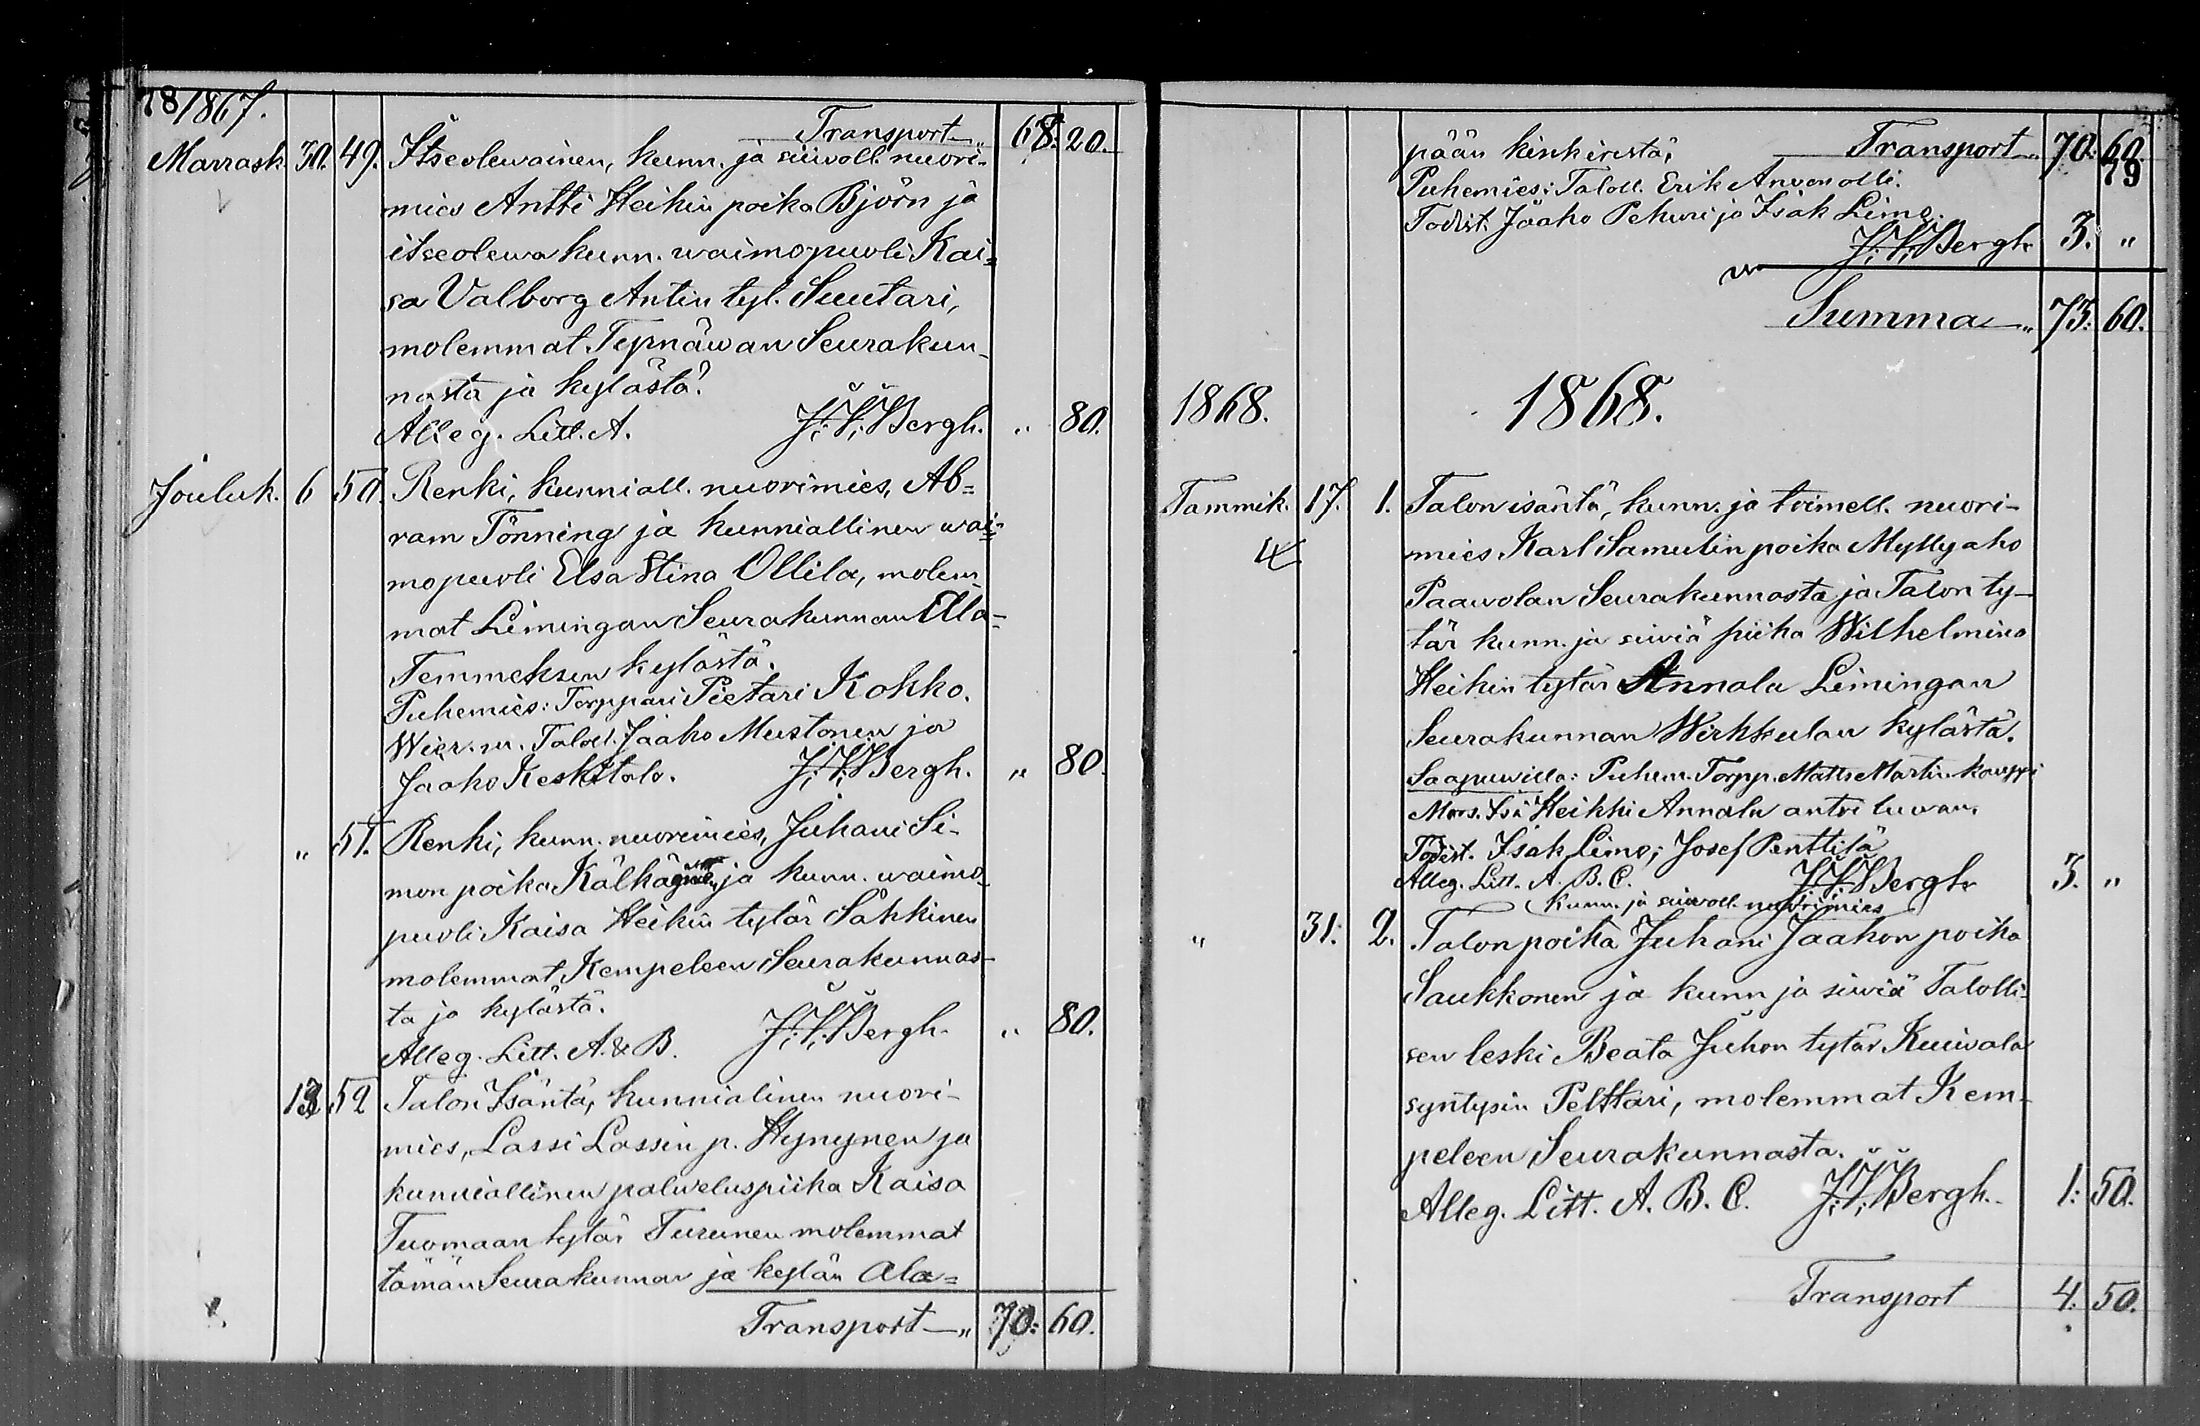 78 1867.
Transport „ 68: 20.
Marrask. 30. 49. Itseolewainen, kunn. ja siiwoll. nuori-
mies Antti Heikin poika Björn ja
itseolewa kunn. waimopuoli Kai=
sa Valborg Antin tyt. Suutari,
molemmat Tyrnäwan Seurakun-
nasta ja kylästä.
Alleg. Litt. A. J. V. Bergh. „ 80.
Jouluk. 6 50. Renki, kunniall. nuorimies, Ab=
ram Tönning ja kunniallinen wai=
mopuoli Elsa Stina Ollila, molem-
mat Limingan Seurakunnan Ala=
Temmeksen kylästä.
Puhemies: Torppari Pietari Kokko.
Wier. m. Taloll. Jaako Mustonen ja
Jaako Keskitalo. J. V. Bergh. „ 80.
„ 51. Renki, kunn. nuorimies, Juhani Si-
mon poika Kälkäinen ja kunn. waimo-
puoli Kaisa Heikin tytär Sähkinen
molemmat Kempeleen Seurakunnas-
ta ja kylästä.
Alleg. Litt. A. & B. J. V. Bergh. „ 80.
13 52 Talon Isäntä, kunnialinen nuori-
mies, Lassi Lassin p. Hynynen ja
kunniallinen palweluspiika Kaisa
Tuomaan tytär Turunen molemmat
tämän Seurakunnan ja kylän Ala=
Transport „ 70: 60.
pään kinkiristä, Transport „ 70: 60.
79
Puhemies: Taloll. Erik Anvenolli.
Todist. Jaako Pehuri ja Isak Limo.
J. V. Bergh 3. „
Summa „ 73: 60.
1868. 1868.
Tammik. 17. 1. Talon isäntä, kunn. ja toimell. nuori-
mies Karl Samulin poika Myllyaho
Paawolan Seurakunnasta ja Talon ty-
tär kunn. ja siwiä piika Wilhelmina
Heikin tytär Annala Limingan
Seurakunnan Wirkkulan kylästä.
Saapuwilla: Puhem. Torpp. Matts Martinkauppi
Mors. Isä Heikki Annala antoi luwan.
Todist. Isak Limo; Josef Penttilä
Alleg. Litt. A. B. C. J. V. Bergh 3. „
kunn. ja siiwoll. nuorimies
„ 31. 2. Talon poika Juhani Jaakon poika
Saukkonen ja kunn ja siwiä Talolli-
sen leski Beata Juhon tytär Kuiwala
syntysin Pelttari, molemmat Kem-
peleen Seurakunnasta.
Alleg. Litt. A. B. C. J. V. Bergh. 1: 50.
Transport 4: 50.